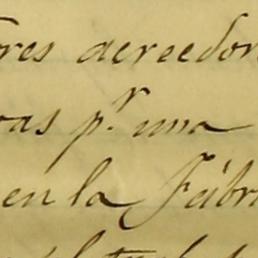 res acreedor
as p.r una
en la Fábri